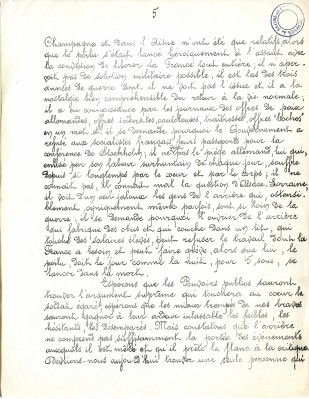 5
Champagne et dans l'Aisne n'ont été que relatifs, alors
que le poilu s'était lancé héroïquement à l'assaut avec
la conviction de libérer la France tout entière; il n'aper-
çoit pas de solution militaire possible; il est las des trois
années de guerre dont il ne voit pas l'issue et il a la
nostalgie bien compréhensible du retour à la vie normale;
il a eu connaissance par les journaux des offres de paix
allemandes, offres indirectes, cauteleuses, traîtresses, offres "boches"
en un mot, et il se demande pourquoi le Gouvernement a
refusé aux socialistes français leurs passeports pour la
conférence de Stockholm; il méprise le
par son labeur surhumain de chaque jour, souffre
depuis si longtemps par le cœur et par le corps; il ne
connaît pas, il connaît mal la question d'Alsace-Lorraine;
il voit d'un œil jaloux les gens de l'arrière qui, ostensi-
blement, cyniquement même parfois, sont si loin de la
guerre; il se demande pourquoi l'ouvrier de l'arrière
qui fabrique des obus et qui couche dans un lit, qui
touche des salaires élevés, peut refuser le travail dont la
France a besoin et peut faire grève alors que lui, le
poilu, doit le jour comme la nuit, pour 5 sous, se
lancer dans la mort.
Espérons que les Pouvoirs publics sauront
trouver l'argument suprême qui touchera au cœur le
soldat égaré; espérons que les mieux trempés de nos braves
sauront gagner à leur ardeur inlassable les faibles, les
hésitants, les désemparés. Mais constatons que l'arrière
ne comprend pas suffisamment la portée des évènements
auxquels il est mêlé et qu'il prête le flanc à la critique.
Pouvons-nous aujourd'hui trouver une seule personne qui